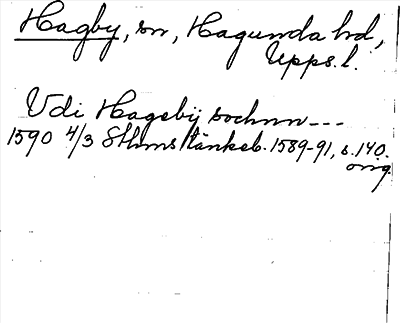 Hagby, sn, Hagunda hd,
Upps. l.
Vdi Hagebÿ sochnn ---
1590 4/3 Sthms tänkeb. 1589-91, s. 140.
orig.